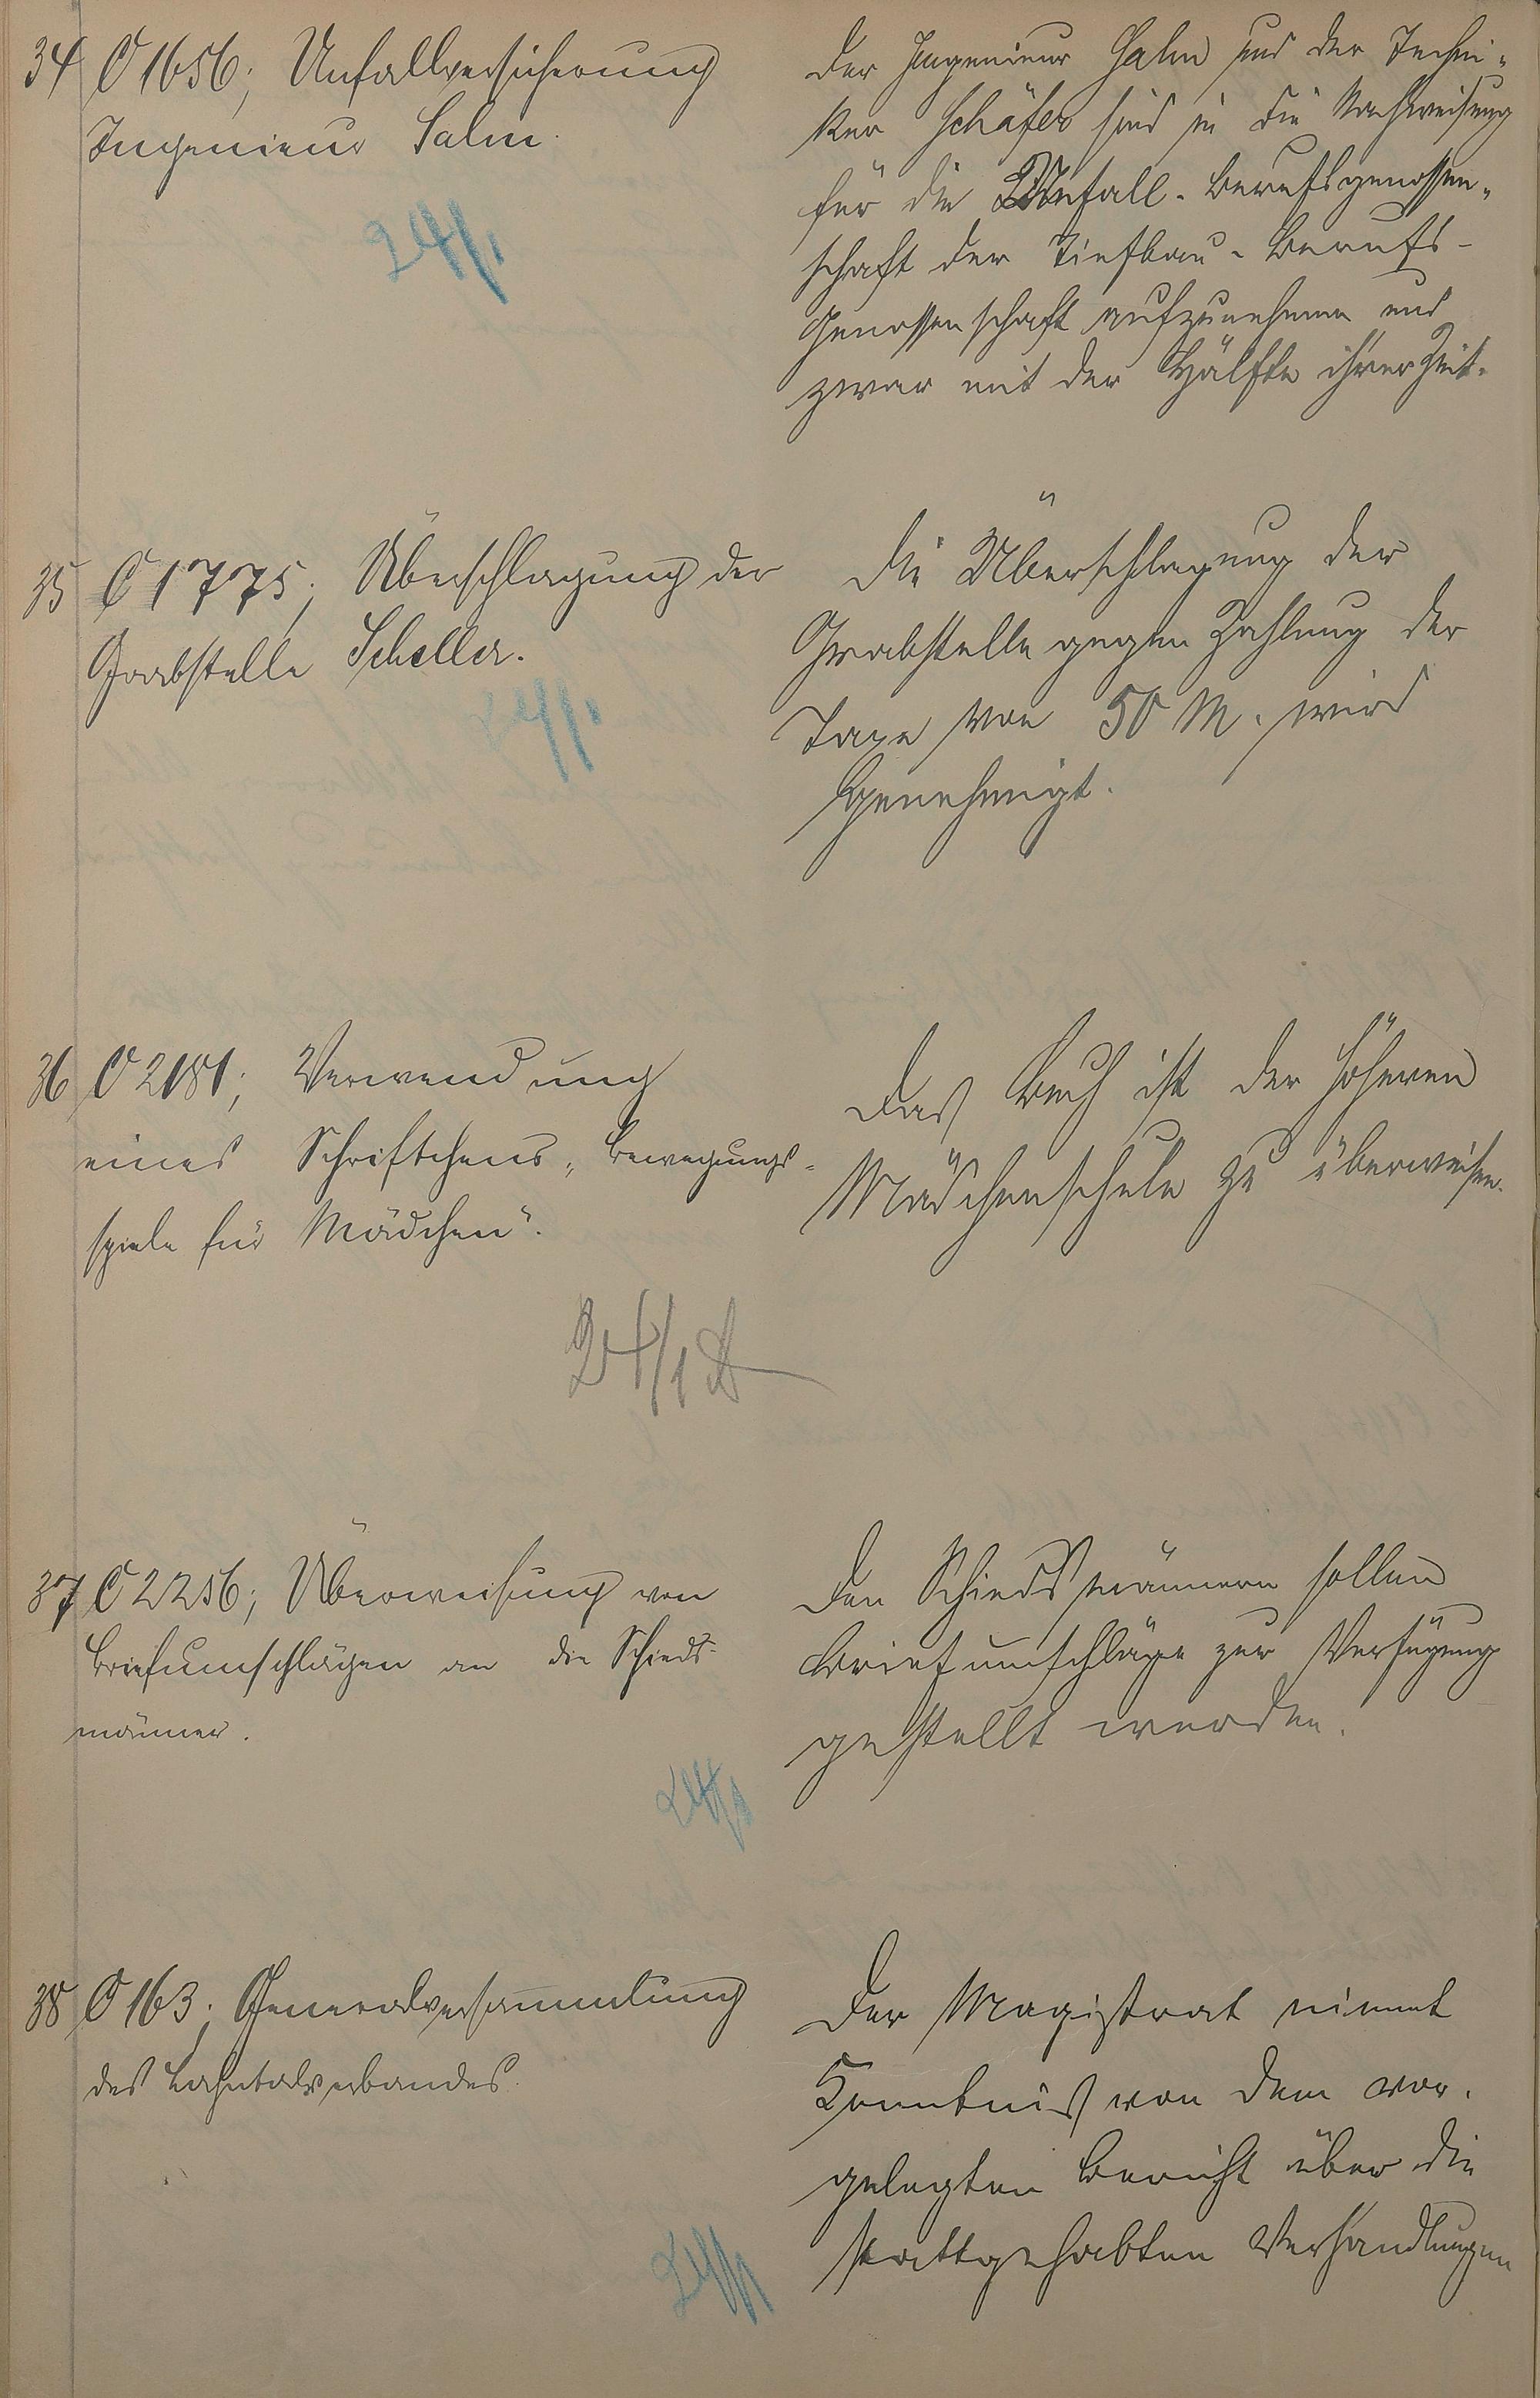 34 C 1656; Unfallversicherung
Ingenieur Salm.
24/1
Der Ingenieur Salm und der Techni-
ker Schäfer sind in die Nachweisung
für die Unfall-Berufsgenossen-
schaft der Tiefbau-Berufs-
genossenschaft aufzunehmen und
zwar mit der Hälfte ihrer Zeit.
35 C 1775; Überschlagung der
Grabstelle Scheller.
24/1
Die Überschlagung der
Grabstelle gegen Zahlung der
Taxe von 50 M. wird
genehmigt.
36 C 2181; Verwendung
eines Schriftchens „Bewegungs-
spiele für Mädchen“.
24/1
Das Buch ist der höheren
Mädchenschule zu überweisen.
37 C 2256; Überweisung von
Briefumschlägen an die Schieds-
männer.
24/1
Den Schiedsmännern sollen
Briefumschläge zur Verfügung
gestellt werden.
38 C 163; Generalversammlung
des Lahntalverbandes.
24/1
Der Magistrat nimmt
Kenntniß von dem vor-
gelegten Bericht über die
stattgehabten Verhandlungen